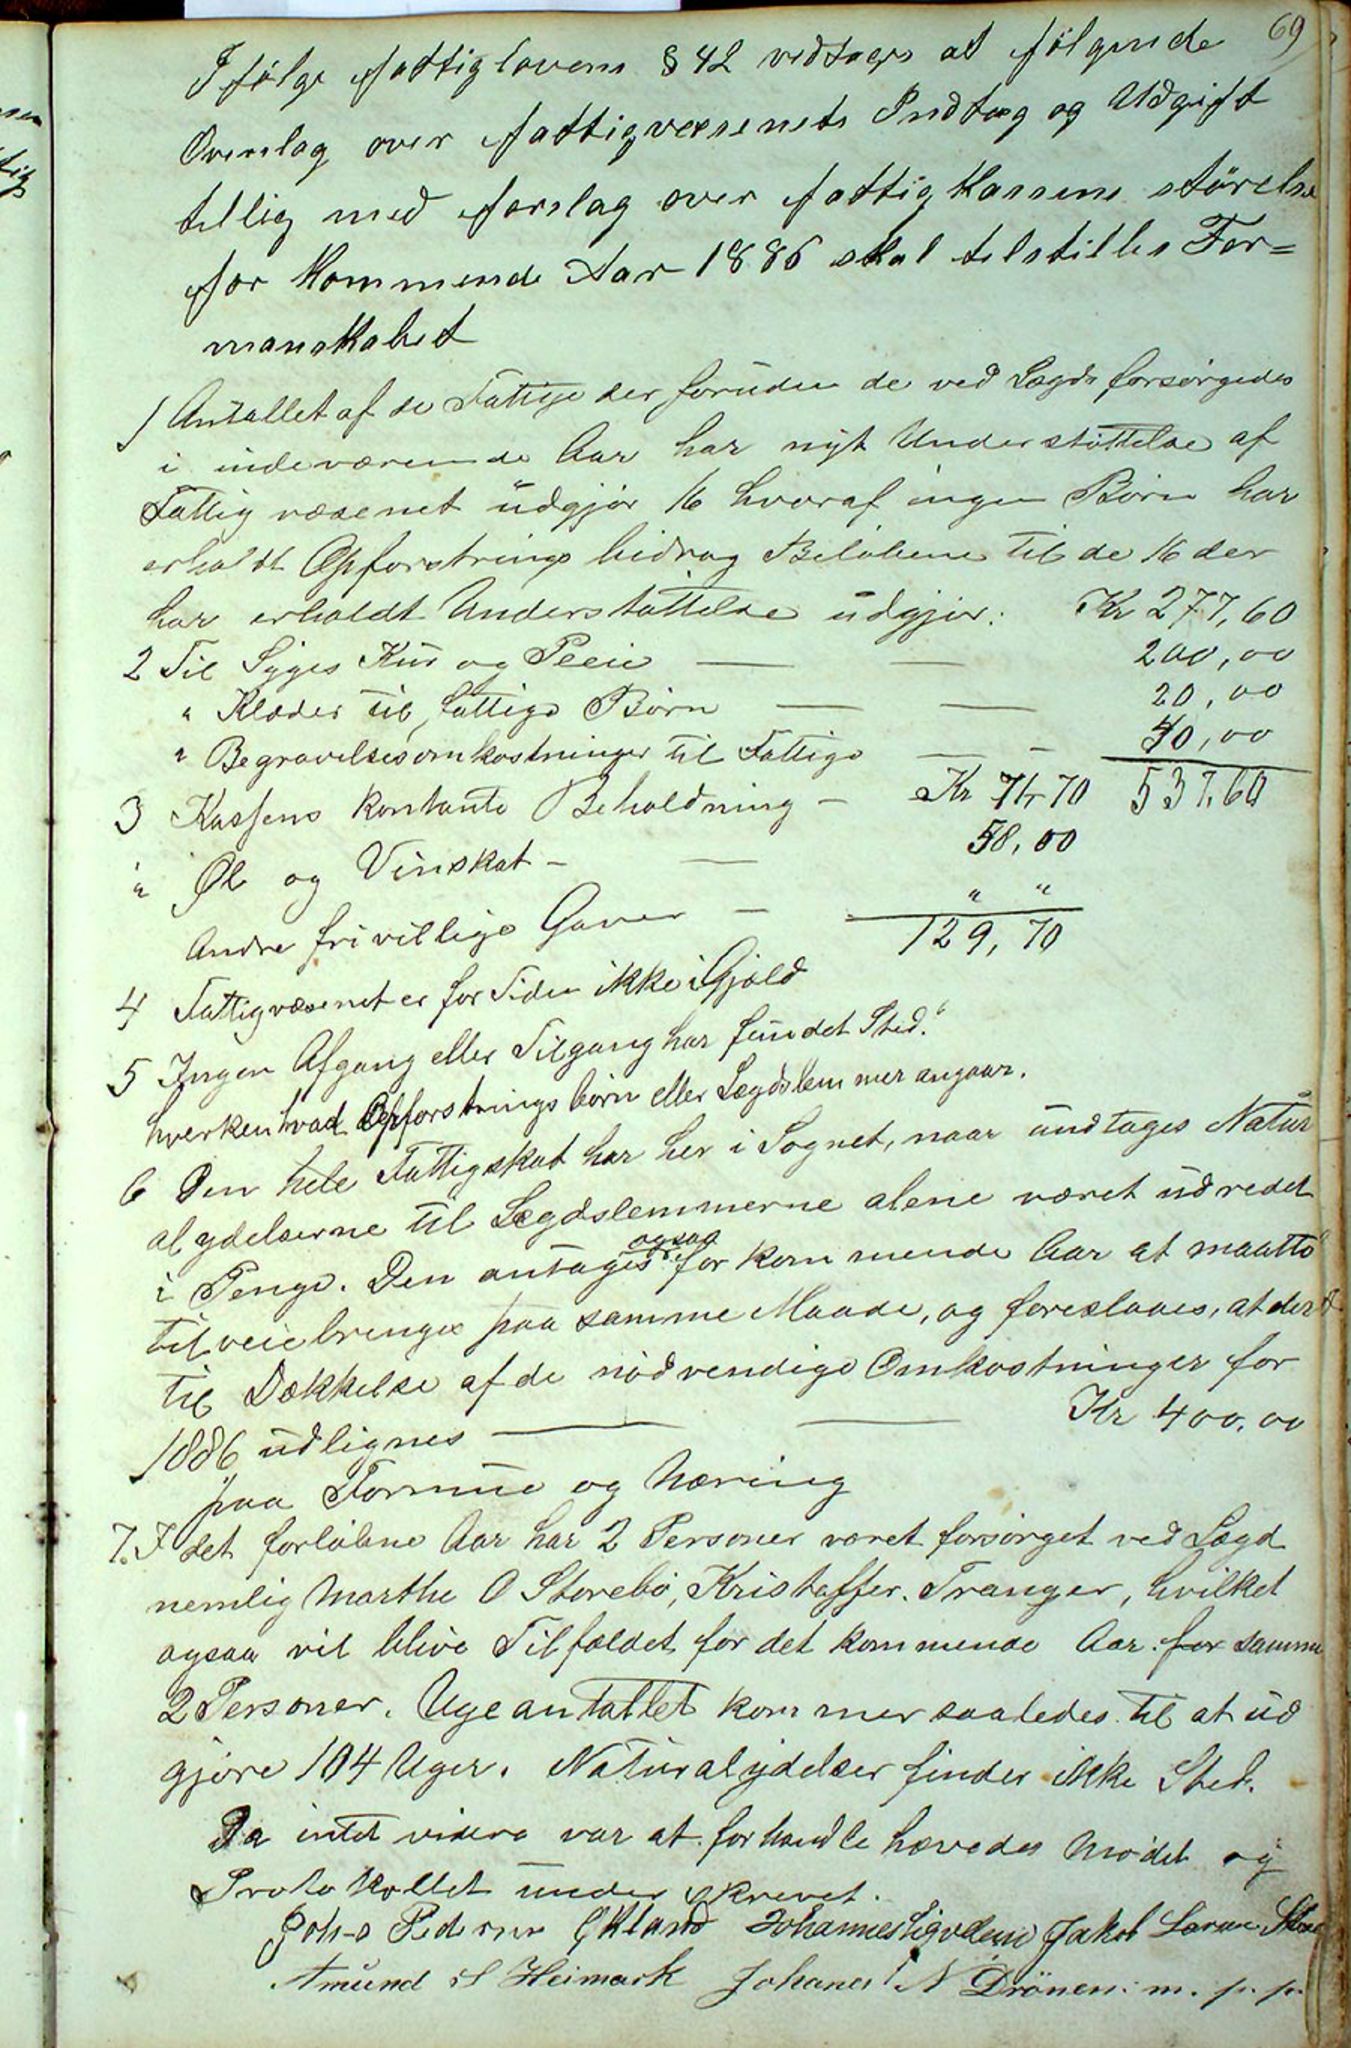 69
Ifølge fattiglovens § 42 vedtages at følgende
Overslag over fattigvæsenets Indtæg og Udgift
tillig med forslag over fattigkassens størelse
for kommende Aar 1886 skal tilstilles For=
manskabet
1 Antallet af de Fattige der foruden de ved Lægd forsørgedes
i indeværende Aar har nyt Understøttelse af
Fattigvæsenet udgjør 16 hvoraf ingen Børn har
erholdt Opfostrings bidrag Beløbene til de 16 der
har erholdt Understøttelse udgjør. Kr 277,60
2 Til Syges Kur og Pleie — — 200,00
" Klæder til fattige Børn — — 20,00
" Begravelsesomkostninger til Fattige — - 40,00
3 Kassens kontante Beholdning – Kr 71,70 537,60
" Øl og Vinskat – — 58,00
Andre frivillige Gaver — " "
129,70
4 Fattigvæsenet er for Tiden ikke i Gjæld
5 Ingen Afgang eller Tilgang har fundet Sted."
hverken hvad Opforstrings børn eller Lægdslemmer angaar.
6 Den hele Fattigskat har her i Sognet, naar undtages Natur
alydelserne til Lægdslemmerne alene været udredet
i Penge. Den antages ogsaa for kommende Aar at maatte
tilveiebringes paa samme Maade, og foreslaaes, at der
til Dækkelse af de nødvendige Omkostninger for
1886 udlignes — — Kr 400,00
paa Formue og Næring
7. I det forløbne Aar har 2 Personer været forsørget ved Lægd
nemlig Marthe O Storebø, Kristoffer. Tranger, hvilket
ogsaa vil blive Tilfældet for det kommende Aar. for samme
2 Personer. Ugeantallet kommer saaledes til at ud
gjøre 104 Uger. Naturalydelser finder ikke Sted.
Da intet videre var at forhandle hævedes Mødet og
Protokollet underskrevet.
Johs Pedersen Johannes Jakob Larsen
Amund H Heimark Johanes N Drönen. m. p. p.